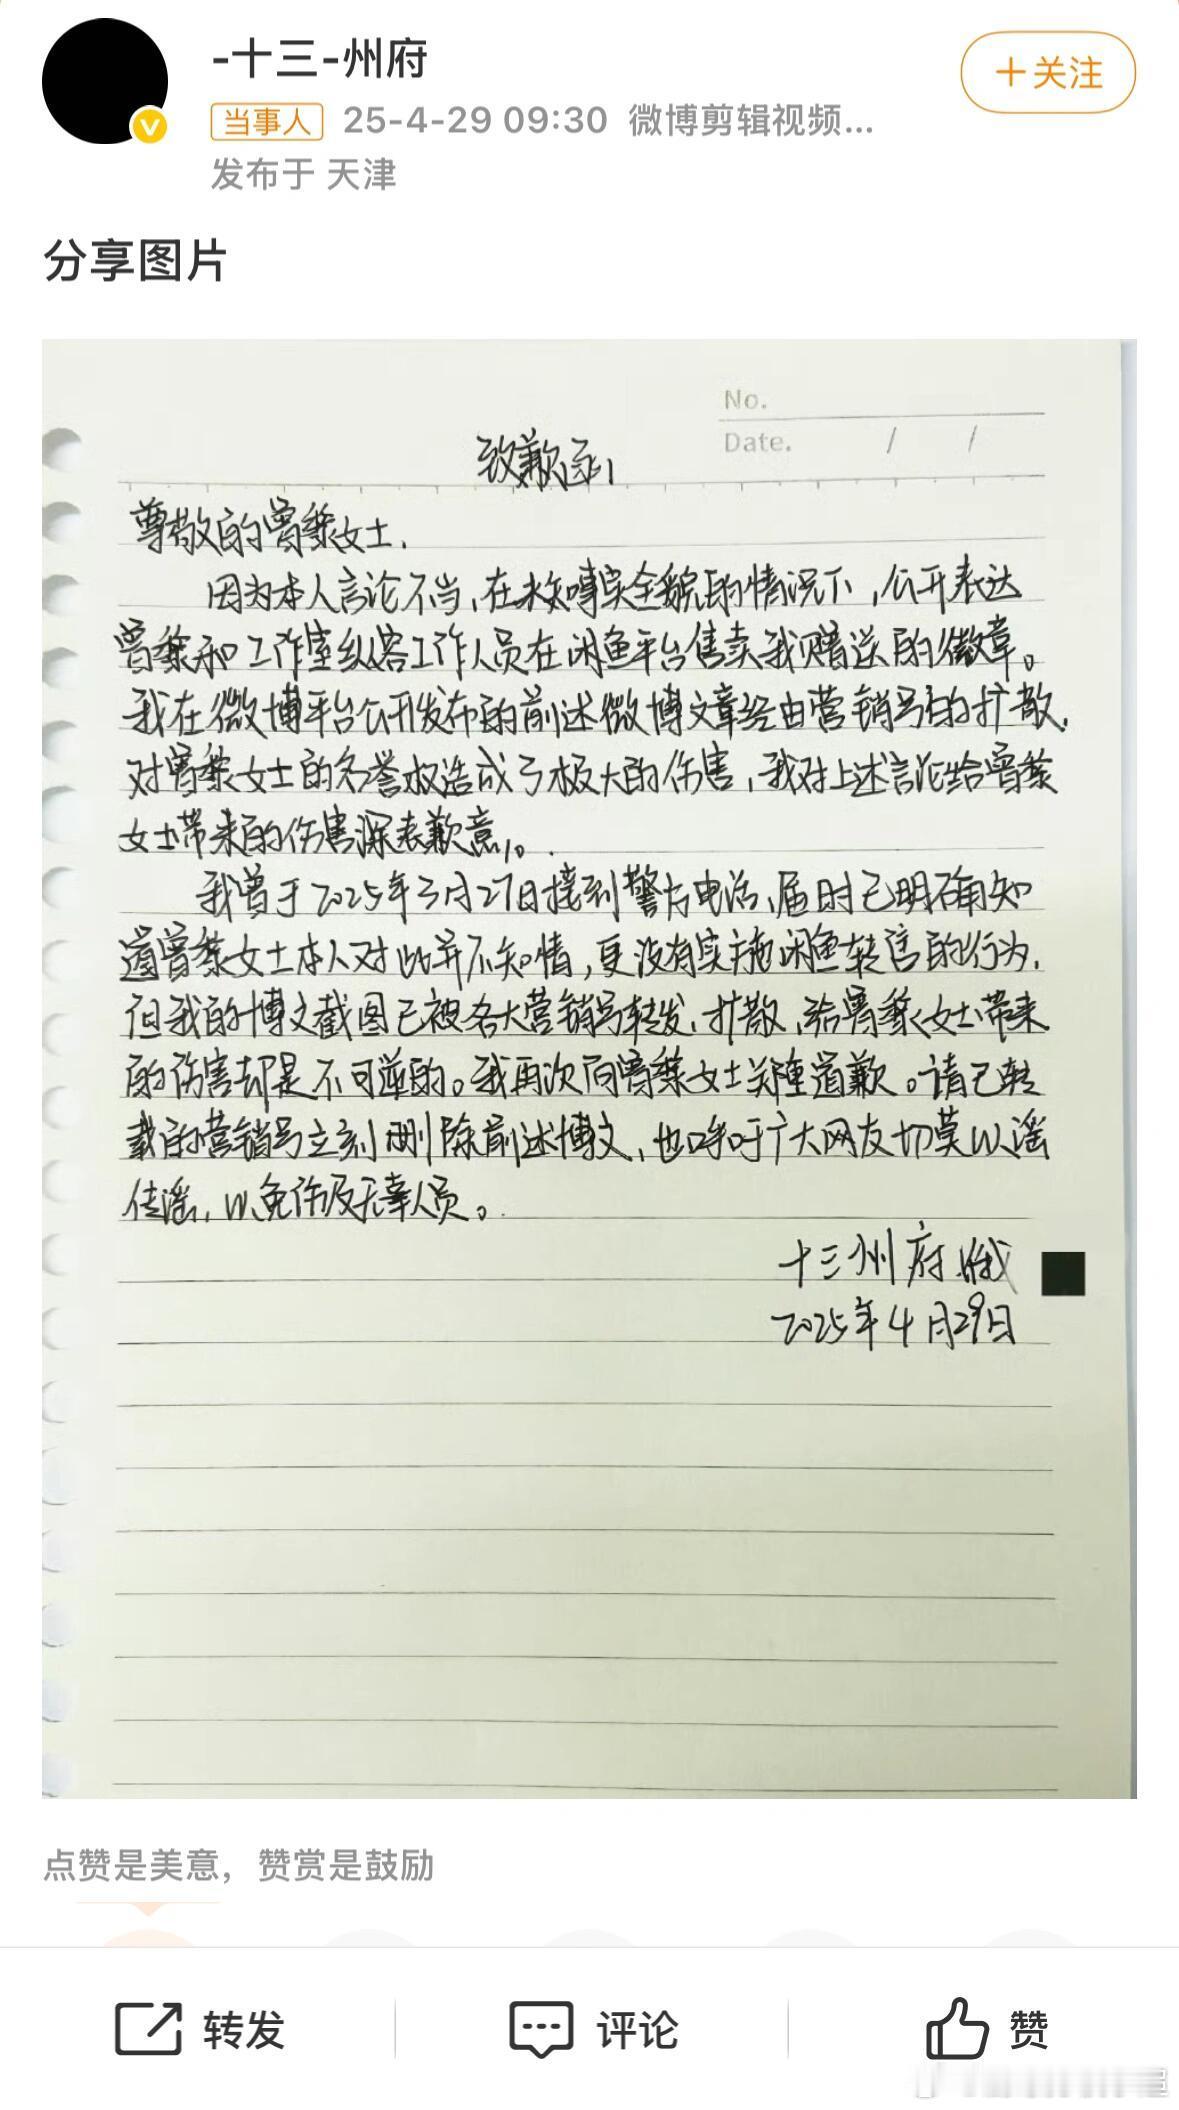 -十三-州府
+关注
当事人 25-4-29 09:30 微博剪辑视频...
发布于 天津
分享图片
No.
Date. / /
致歉函
尊敬的曾黎女士,
因为本人言论不当,在未知事实全貌的情况下,公开表达
曾黎和工作室纵容工作人员在闲鱼平台售卖我赠送的徽章。
我在微博平台公开发布的前述微博文章经由营销号的扩散,
对曾黎女士的名誉权造成了极大的伤害,我对上述言论给曾黎
女士带来的伤害深表歉意。
我曾于2025年3月27日接到警方电话,届时已明确知
道曾黎女士本人对此并不知情,更没有实施闲鱼转售的行为,
但我的博文截图已被各大营销号转发,扩散,给曾黎女士带来
的伤害却是不可逆的。我再次向曾黎女士郑重道歉。请已转
载的营销号立刻删除前述博文,也呼吁广大网友切莫以谣
传谣,以免伤及无辜人员。
十三州府
2025年4月29日
点赞是美意,赞赏是鼓励
转发
评论
赞